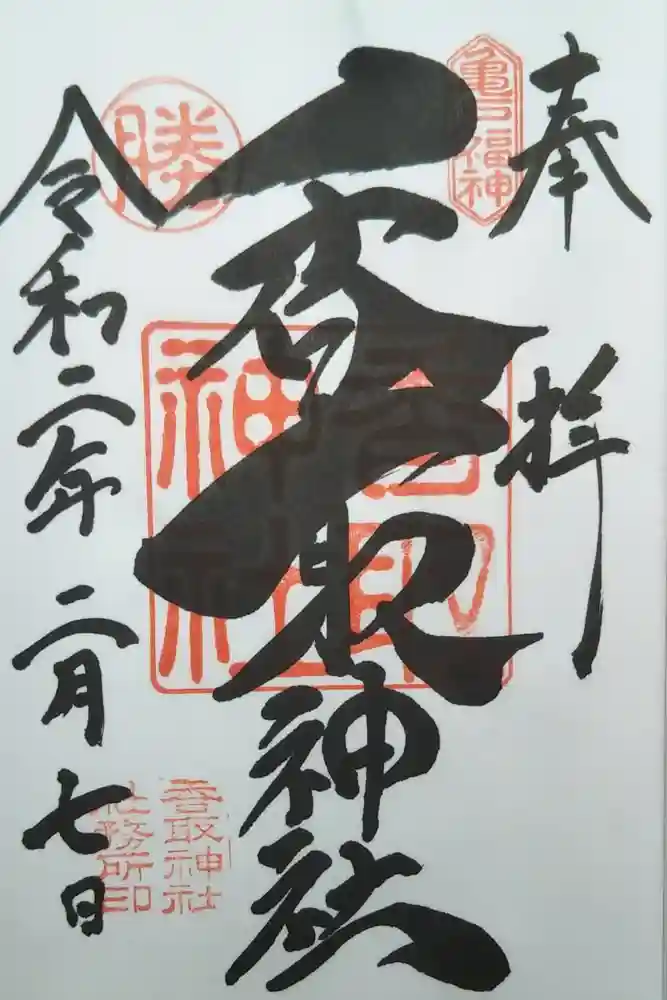 奉拝
亀戸福神
香取神社
香取神社
勝
令和二年二月七日
香取神社
社務所印